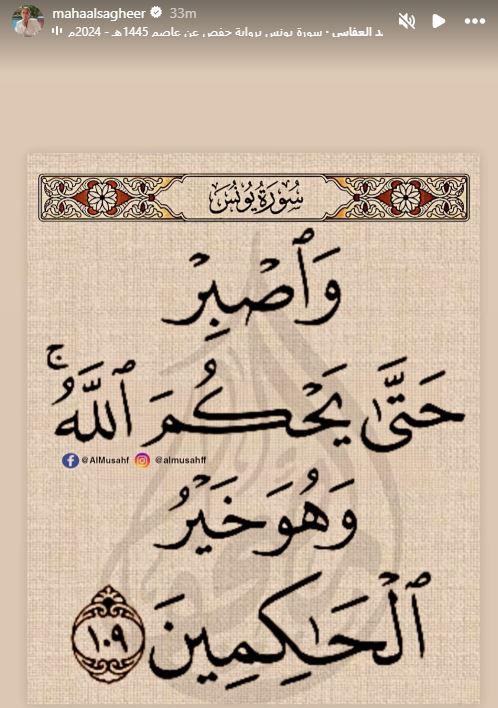 mahaalsagheer 33m
د العفاسي · سورة يونس برواية حفص عن عاصم 1445هـ - 2024م
سُورَةُ يُونُسَ
وَٱصْبِرْ
حَتَّىٰ يَحْكُمَ ٱللَّهُۚ
@AlMusahf @almusahff
وَهُوَ خَيْرُ
ٱلْحَـٰكِمِينَ ١٠٩